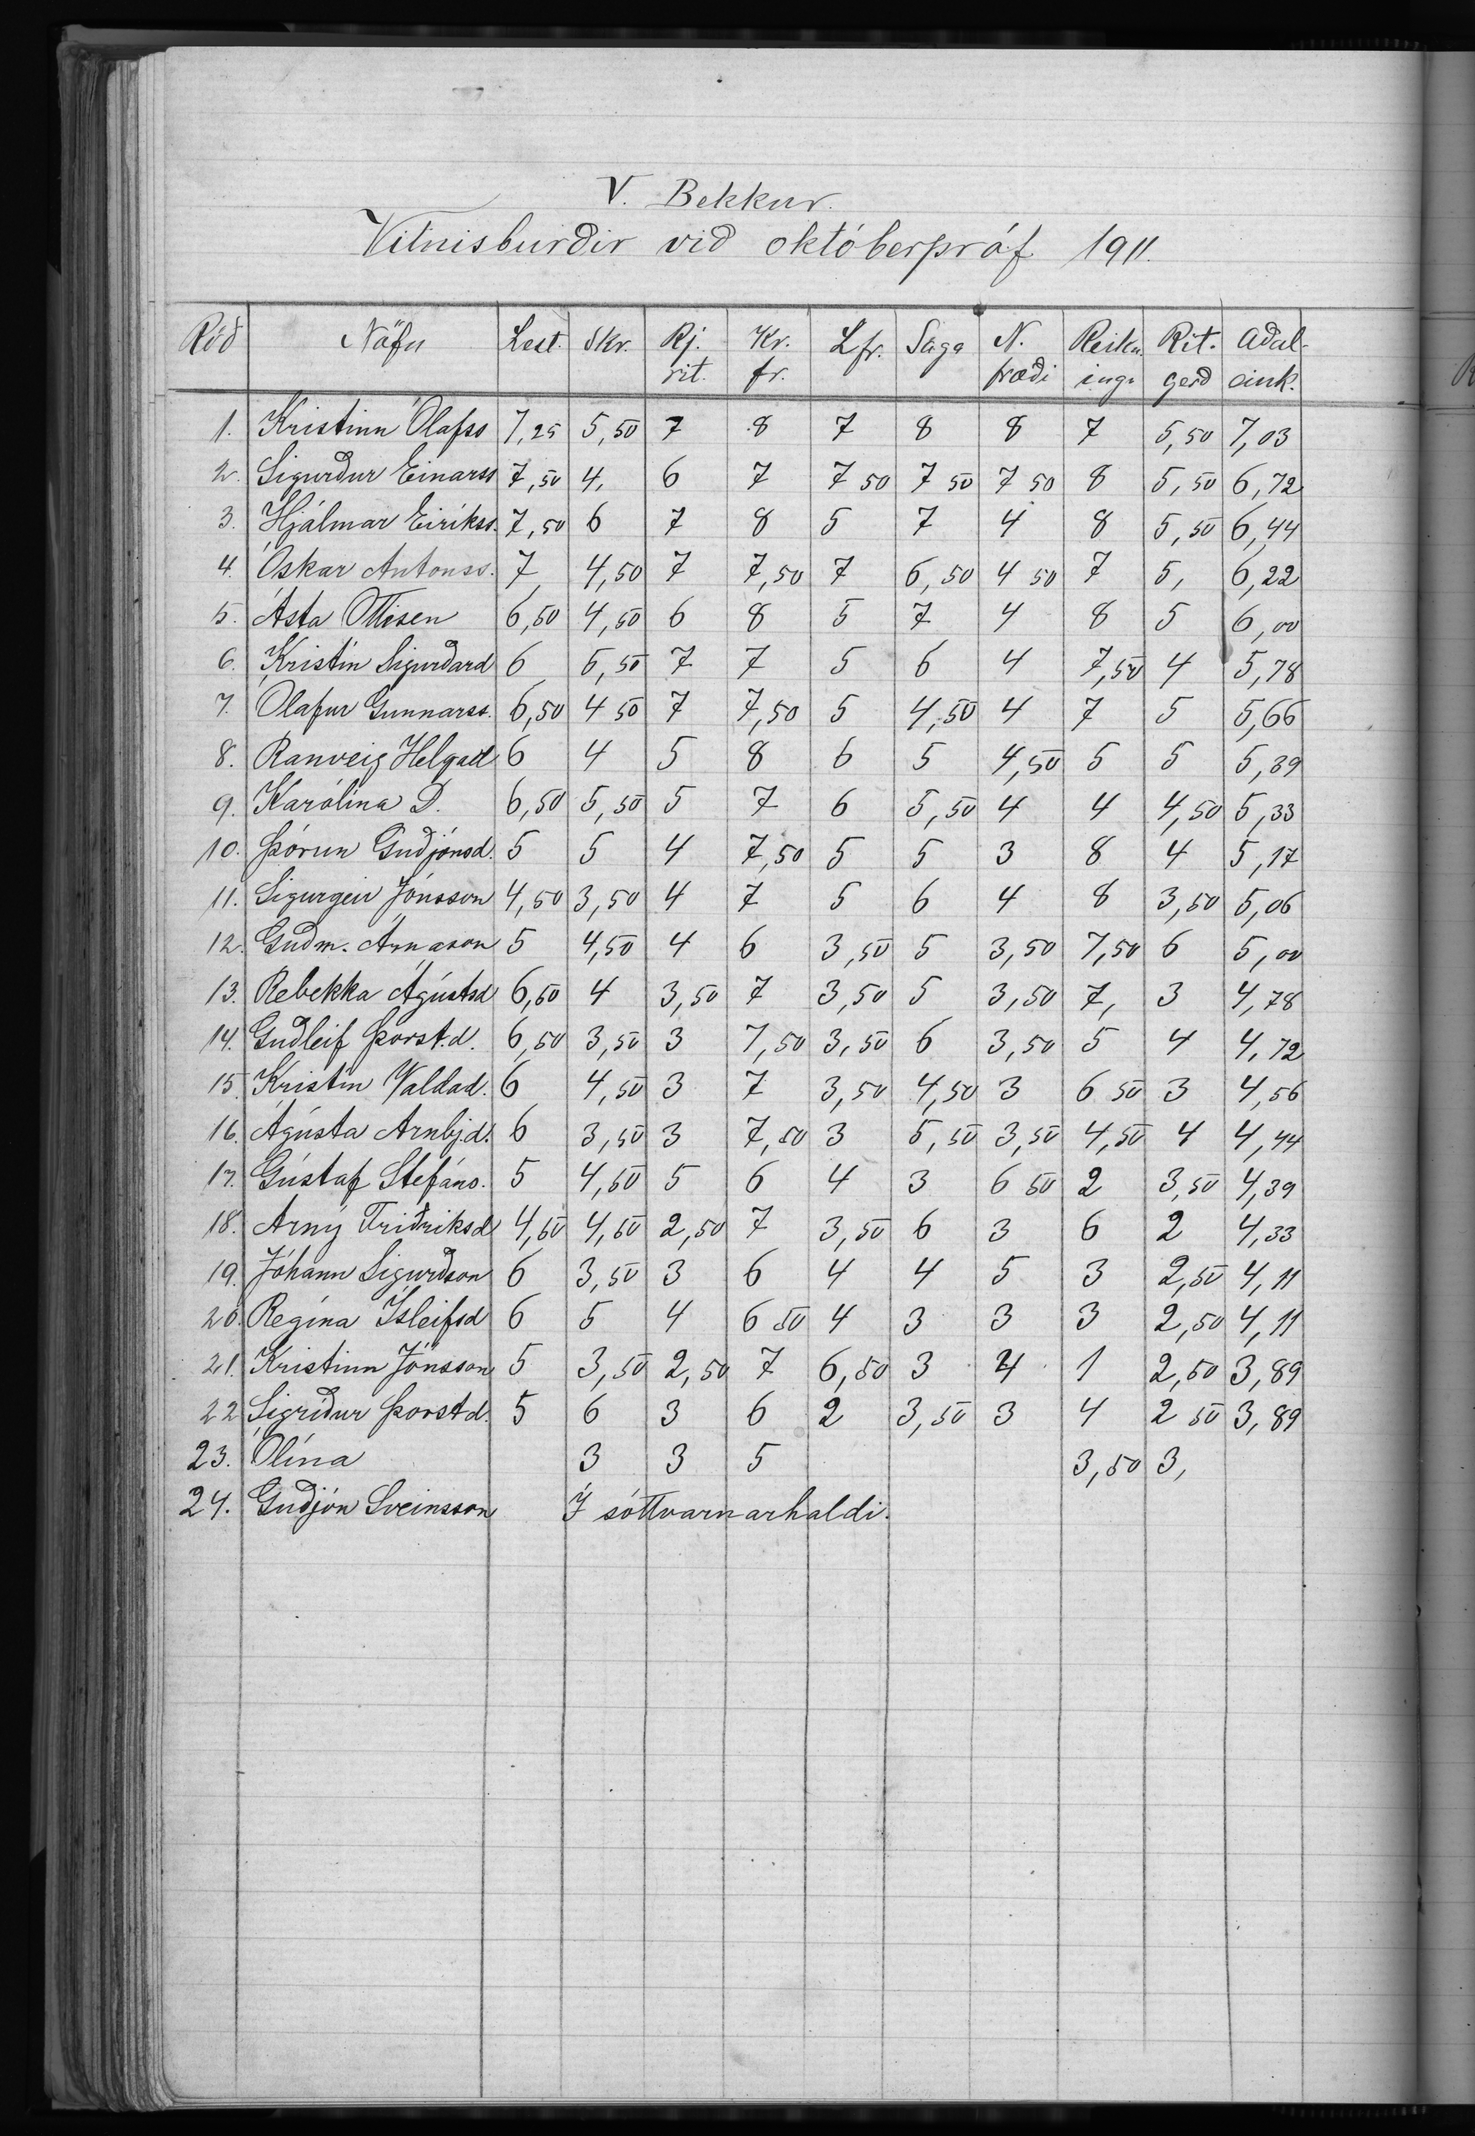 V. Bekkur.
Vitnisburðir við októberpróf 1911.
Röð Nöfn Lest. Skr. Rj. rit. Kr. fr. Lfr. Saga N. fræði Reikn. ingr Rit. gerð Aðal- eink.
1. Kristinn Ólafss 7,25 5,50 7 8 7 8 8 7 5,50 7,03
2. Sigurður Einarss 7,50 4, 6 7 7 50 7 50 7 50 8 5,50 6,72
3. Hjálmar Eiríkss. 7,50 6 7 8 5 7 4 8 5,50 6,44
4. Óskar Antonss. 7 4,50 7 7,50 7 6,50 4 50 7 5, 6,22
5. Ásta Ottesen 6,50 4,50 6 8 5 7 4 8 5 6,00
6. Kristín Sigurðard 6 5,50 7 7 5 6 4 7,50 4 5,78
7. Ólafur Gunnarss. 6,50 4 50 7 7,50 5 4,50 4 7 5 5,66
8. Ranveig Helgad 6 4 5 8 6 5 4,50 5 5 5,39
9. Karólína D. 6,50 5,50 5 7 6 5,50 4 4 4,50 5,33
10. Þórun Guðjónsd. 5 5 4 7,50 5 5 3 8 4 5,17
11. Sigurgeir Jónsson 4,50 3,50 4 7 5 6 4 8 3,50 5,06
12. Guðm. Árnason 5 4,50 4 6 3,50 5 3,50 7,50 6 5,00
13. Rebekka Ágústsd 6,50 4 3,50 7 3,50 5 3,50 7, 3 4,78
14. Guðleif Þorst.d. 6,50 3,50 3 7,50 3,50 6 3,50 5 4 4,72
15. Kristín Valdad. 6 4,50 3 7 3,50 4,50 3 6 50 3 4,56
16. Ágústa Arnbj.d. 6 3,50 3 7,50 3 5,50 3,50 4,50 4 4,44
17. Gústaf Stefáns. 5 4,50 5 6 4 3 6 50 2 3,50 4,39
18. Árný Friðriksd 4,50 4,50 2,50 7 3,50 6 3 6 2 4,33
19. Jóhann Sigurðson 6 3,50 3 6 4 4 5 3 2,50 4,11
20. Regína Ísleifsd 6 5 4 6 50 4 3 3 3 2,50 4,11
21. Kristinn Jónsson 5 3,50 2,50 7 6,50 3 4 1 2,50 3,89
22 Sigríður Þorstd. 5 6 3 6 2 3,50 3 4 2 50 3,89
23. Ólína 3 3 5 3,50 3,
24. Guðjón Sveinsson Í sóttvarnarhaldi.